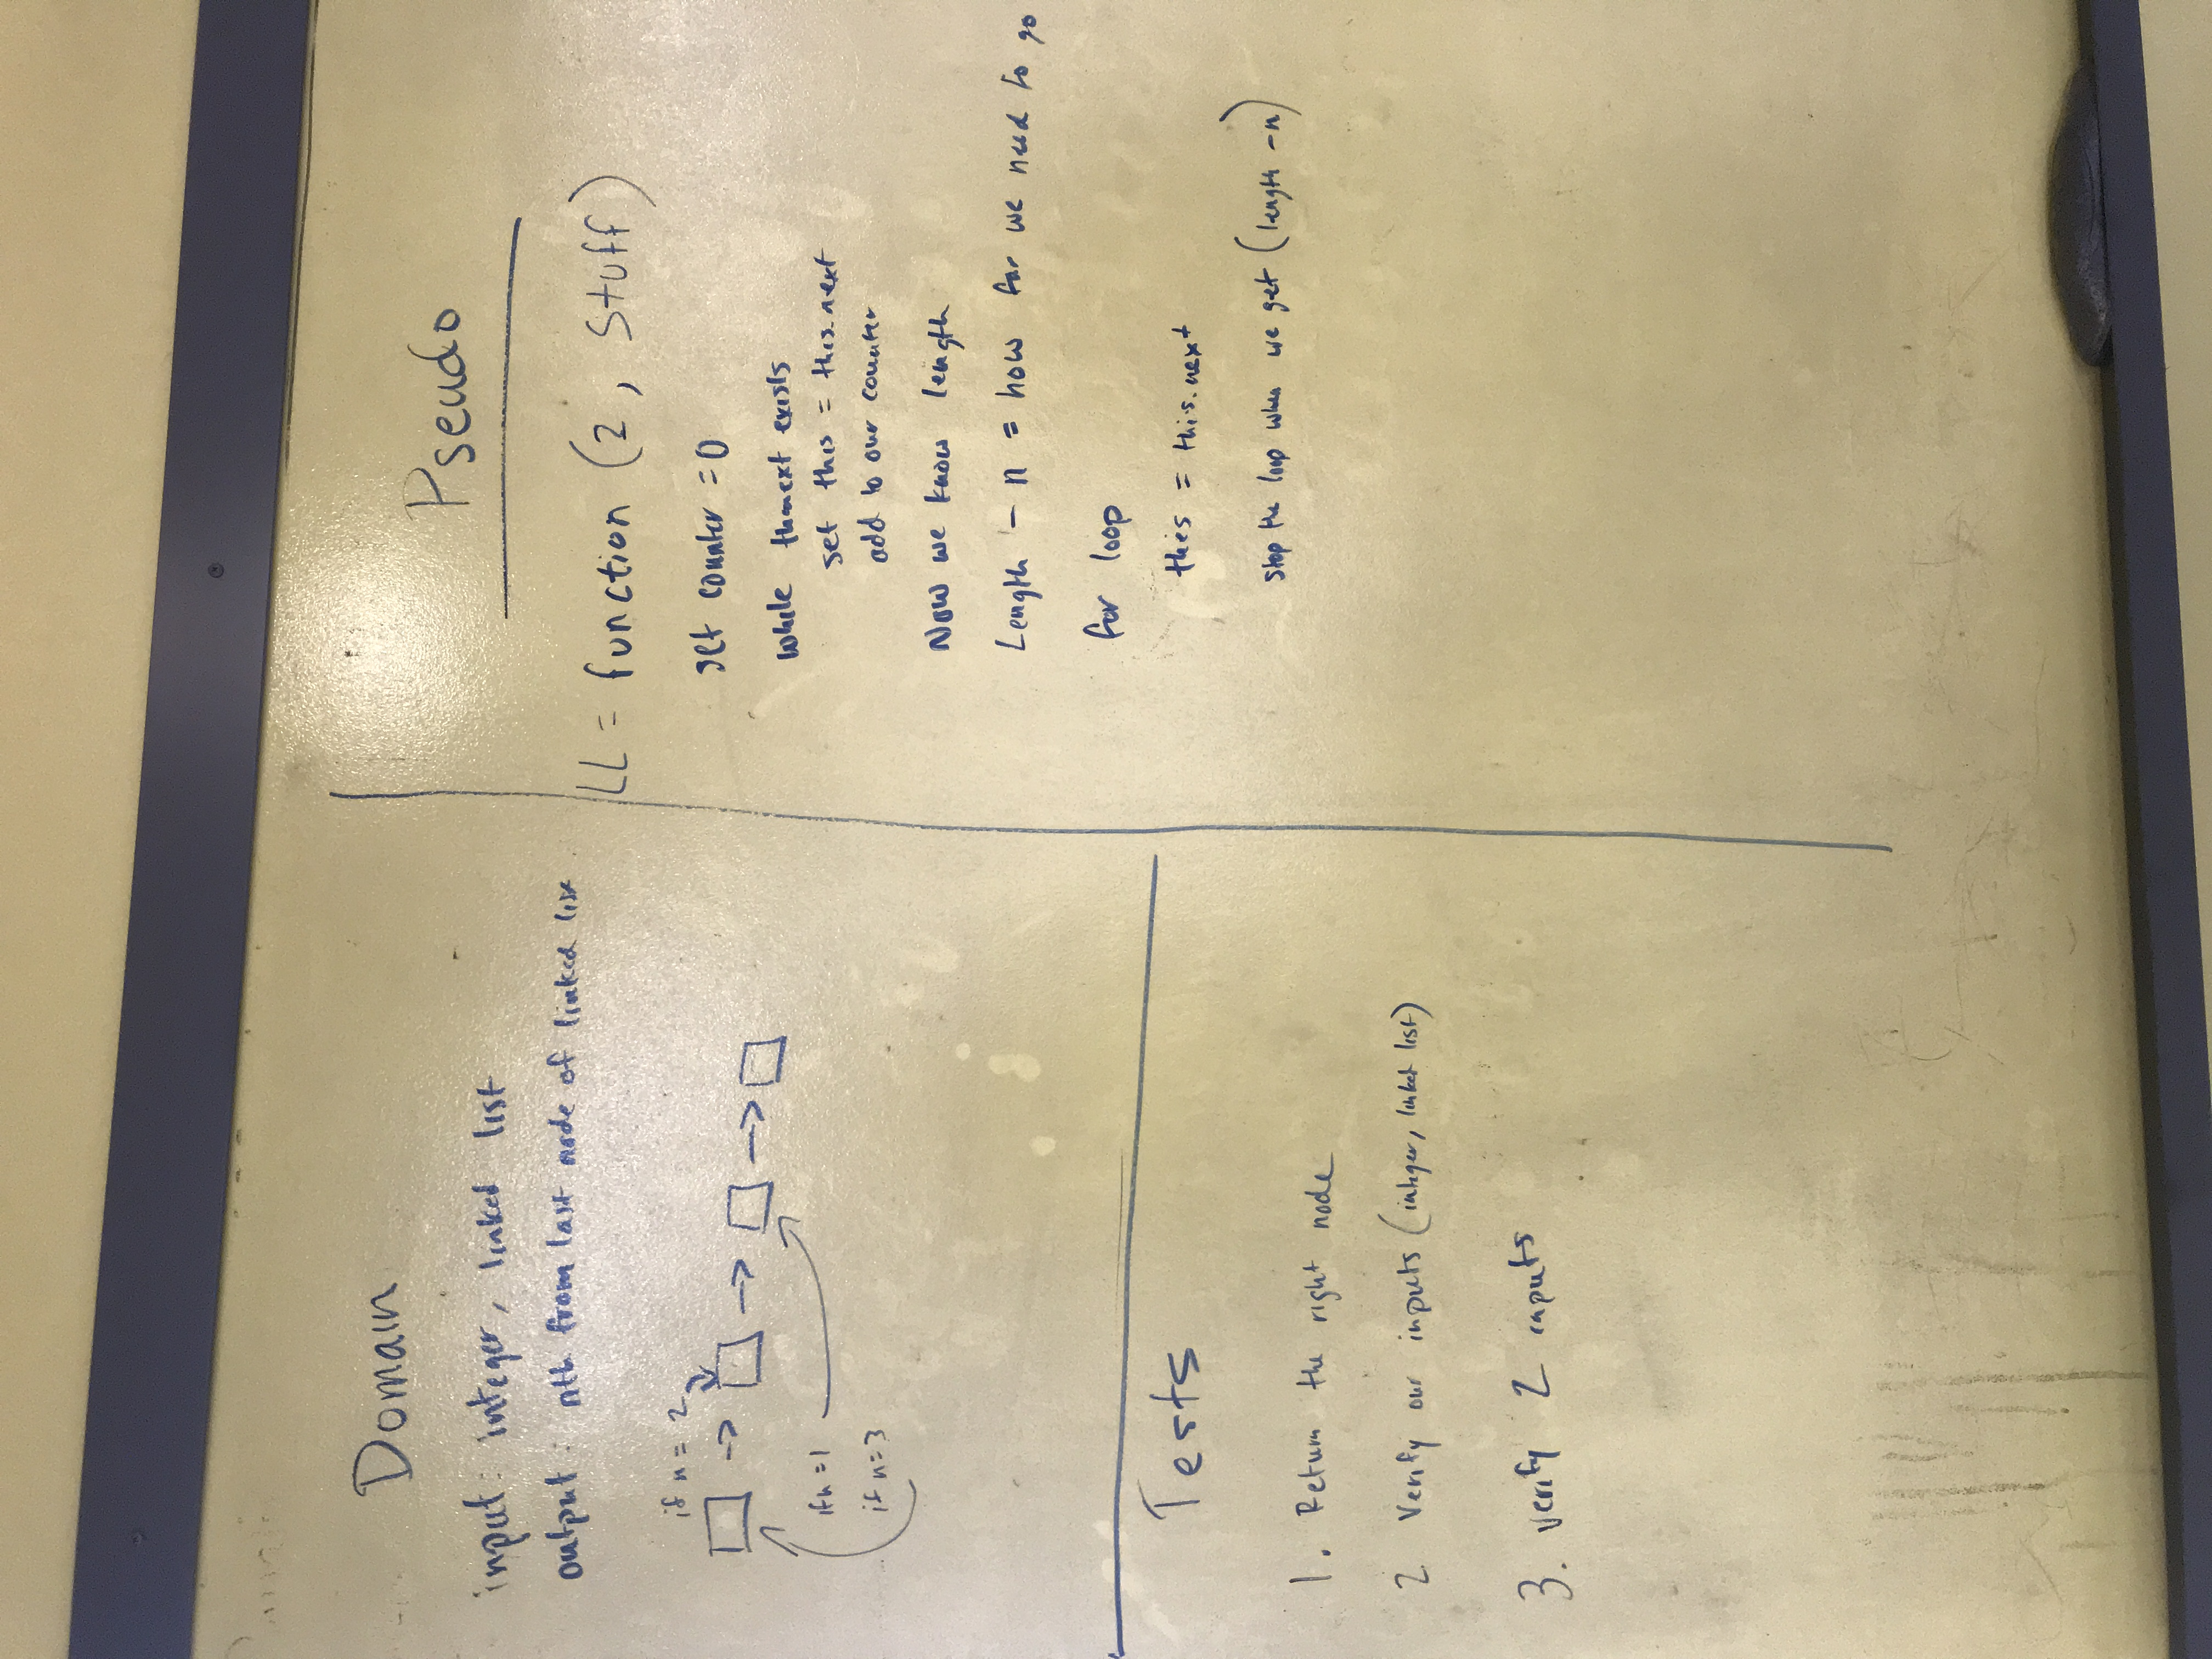 Domain
input: integer, linked list
output: nth from last node of linked list
if n = 2
if n = 1
if n = 3
Tests
1. Return the right node
2 Verify our inputs (integer, linked list)
3. verify 2 inputs
Pseudo
LL = function (2, Stuff)
set counter = 0
while next exists
set this = this.next
add to our counter
Now we know length
Length - n = how far we need to go
for loop
this = this.next
stop the loop when we get (length - n)